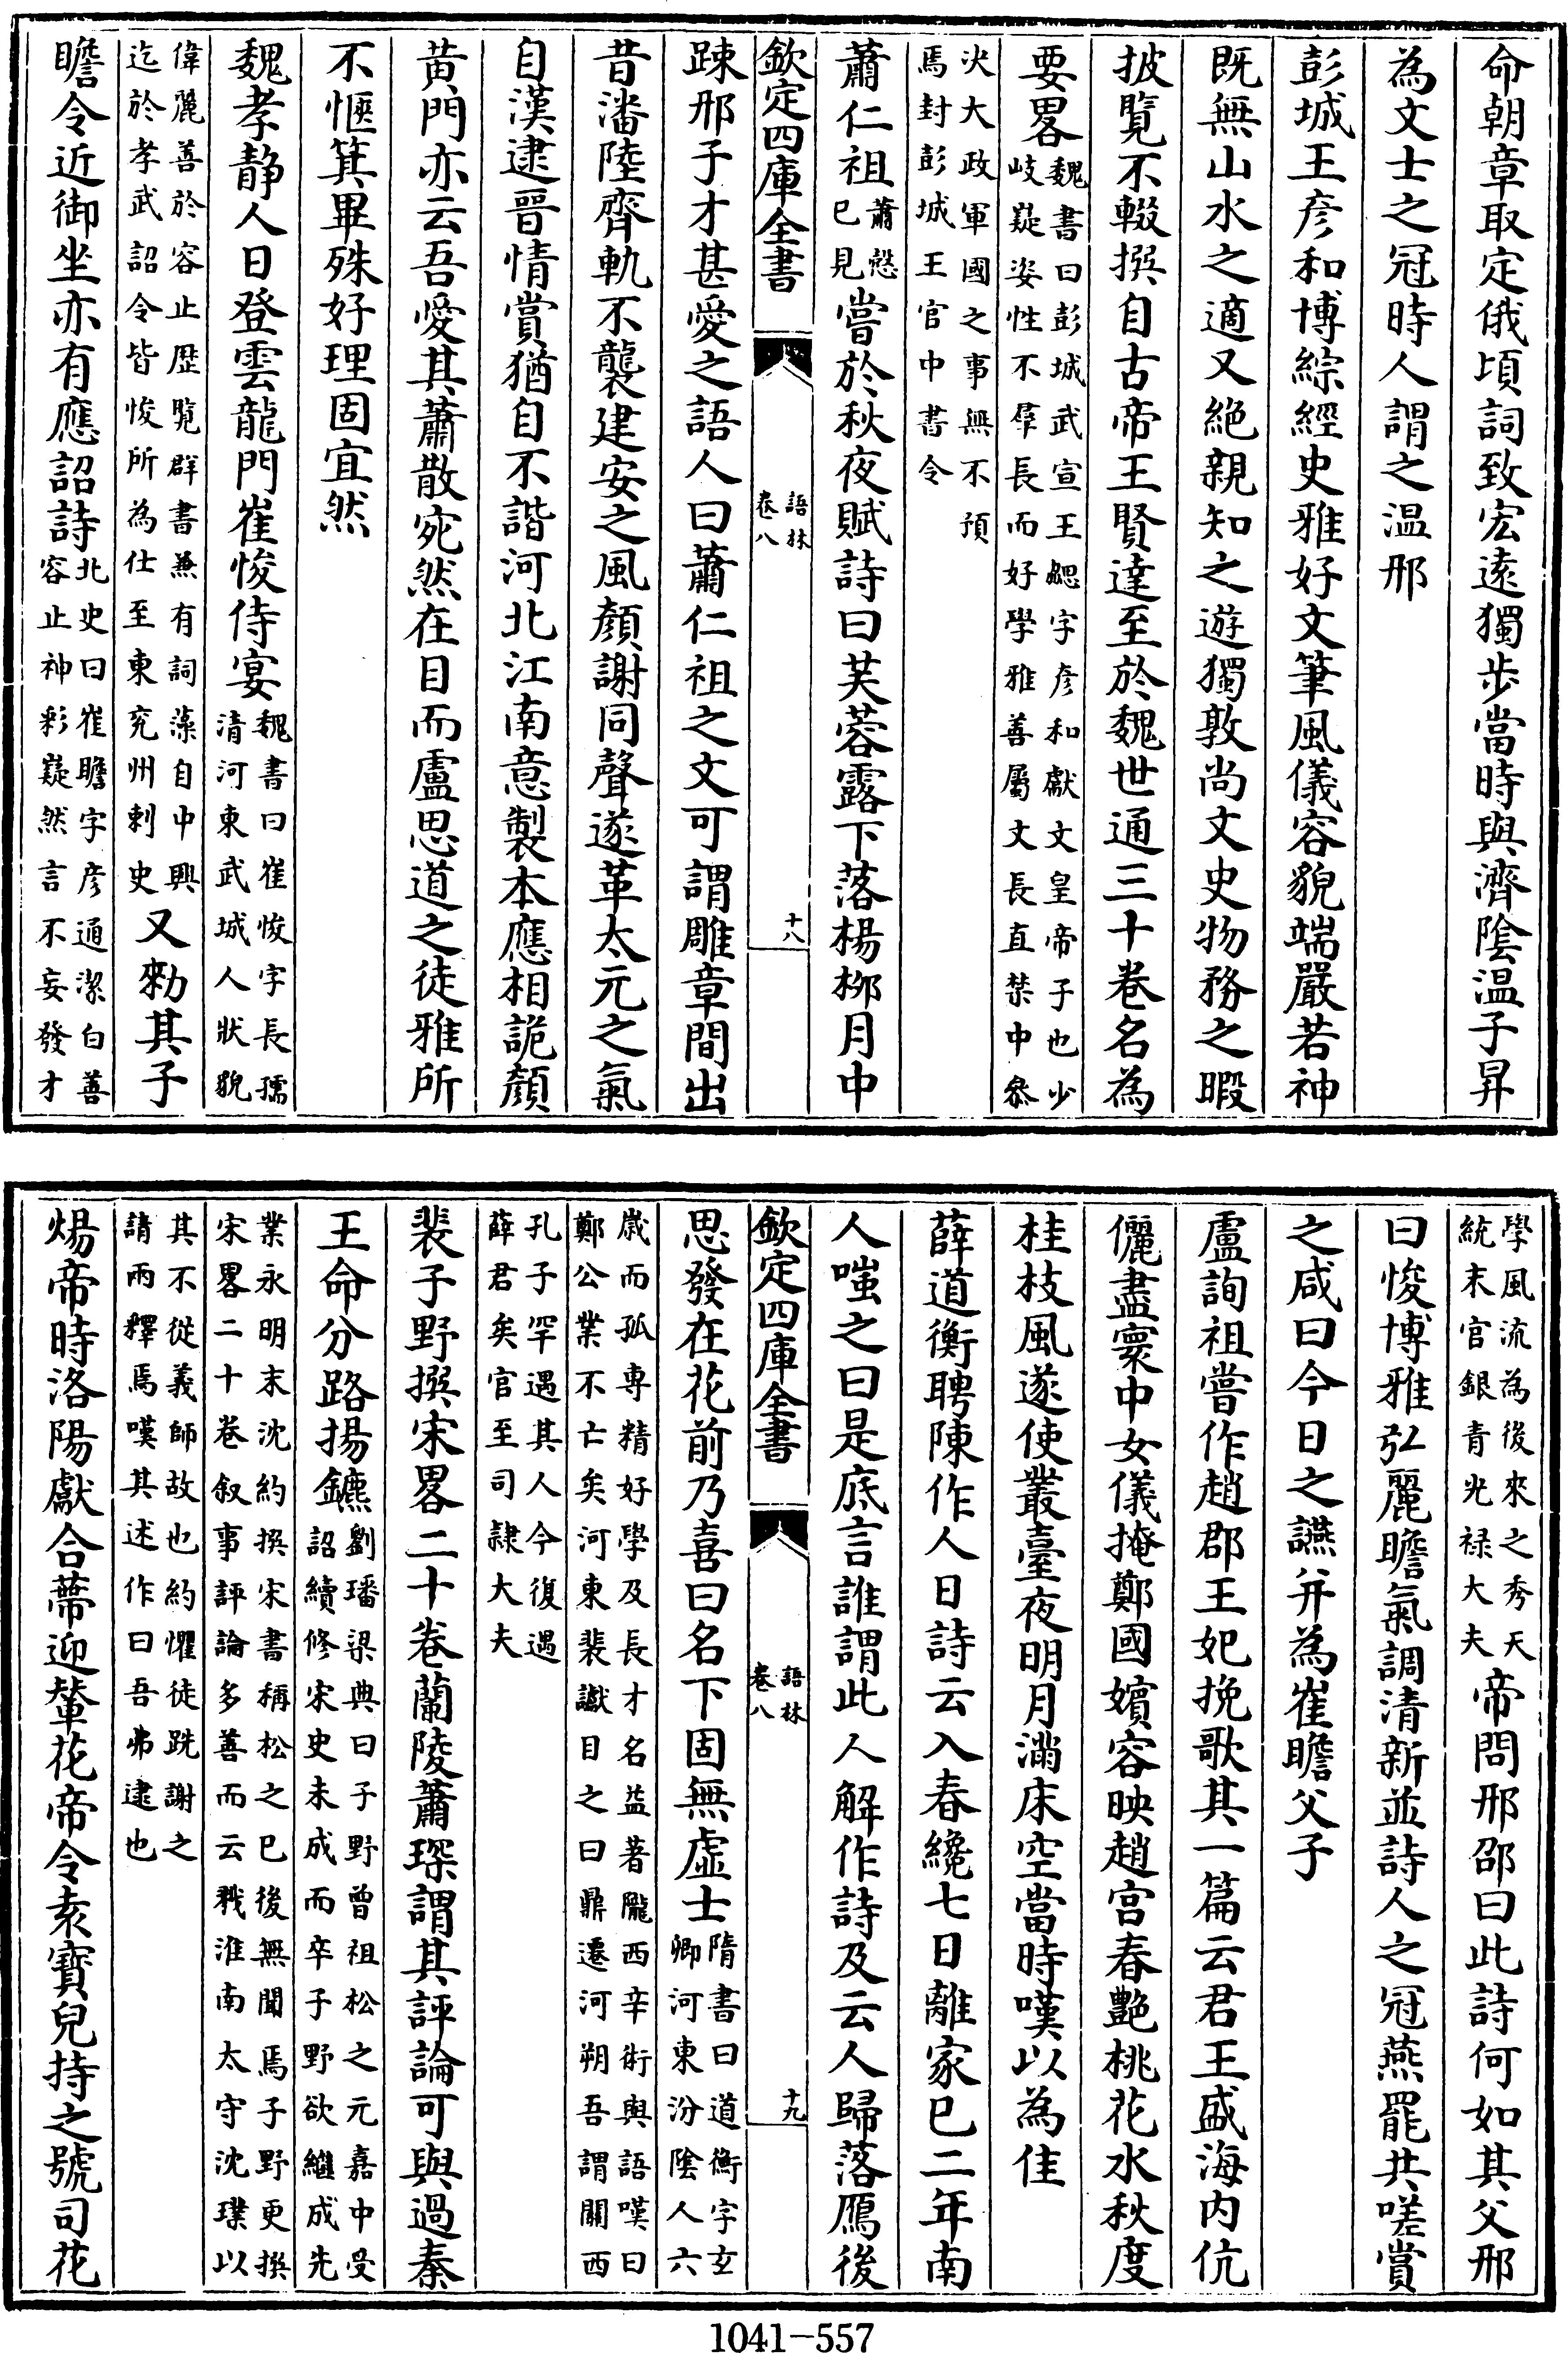 命朝章取定俄頃詞致宏逺獨步當時與濟隂温子昇
為文士之冠時人謂之温邢
彭城王彦和博綜經史雅好文筆風儀容貌端嚴若神
既無山水之適又絶親知之遊獨敦尚文史物務之暇
披覽不輟撰自古帝王賢達至於魏世通三十卷名為
要畧
魏書曰彭城武宣王勰字彦和獻文皇帝子也少
岐嶷姿性不羣長而好學雅善屬文長直禁中叅
决大政軍國之事無不預
焉封彭城王官中書令
蕭仁祖
蕭慤
已見
嘗於秋夜賦詩曰芙蓉露下落楊栁月中
欽定四庫全書
語林
卷八
十八
踈邢子才甚愛之語人曰蕭仁祖之文可謂雕章間出
昔潘陸齊軌不襲建安之風顔謝同聲遂革太元之氣
自漢逮晉情賞猶自不諧河北江南意製本應相詭顔
黄門亦云吾愛其蕭散宛然在目而盧思道之徒雅所
不愜箕畢殊好理固宜然
魏孝静人日登雲龍門崔㥄侍宴
魏書曰崔㥄字長孺
清河東武城人狀貌
偉麗善於容止歴覽群書兼有詞藻自中興
迄於孝武詔令皆㥄所為仕至東兖州刺史
又勑其子
瞻令近御坐亦有應詔詩
北史曰崔瞻字彦通潔白善
容止神彩嶷然言不妄發才
學風流為後來之秀天
統末官銀青光禄大夫
帝問邢邵曰此詩何如其父邢
曰㥄博雅弘麗瞻氣調清新並詩人之冠燕罷共嗟賞
之咸曰今日之讌并為崔瞻父子
盧詢祖嘗作趙郡王妃挽歌其一篇云君王盛海内伉
儷盡寰中女儀掩鄭國嬪容映趙宫春艶桃花水秋度
桂枝風遂使叢臺夜明月滿床空當時嘆以為佳
薛道衡聘陳作人日詩云入春纔七日離家已二年南
人嗤之曰是底言誰謂此人解作詩及云人歸落鴈後
欽定四庫全書
語林
卷八
十九
思發在花前乃喜曰名下固無虚士
隋書曰道衡字玄
卿河東汾隂人六
歳而孤専精好學及長才名益著隴西辛術與語嘆曰
鄭公業不亡矣河東裴讞目之曰鼎遷河朔吾謂關西
孔子罕遇其人今復遇
薛君矣官至司隷大夫
裴子野撰宋畧二十卷蘭陵蕭琛謂其評論可與過秦
王命分路揚鑣
劉璠梁典曰子野曾祖松之元嘉中受
詔續修宋史未成而卒子野欲繼成先
業永明末沈約撰宋書稱松之已後無聞焉子野更撰
宋畧二十卷叙事評論多善而云戮淮南太守沈璞以
其不從義師故也約懼徒跣謝之
請兩釋焉嘆其述作曰吾弗逮也
煬帝時洛陽獻合蔕迎輦花帝令袁寳兒持之號司花
1041-557